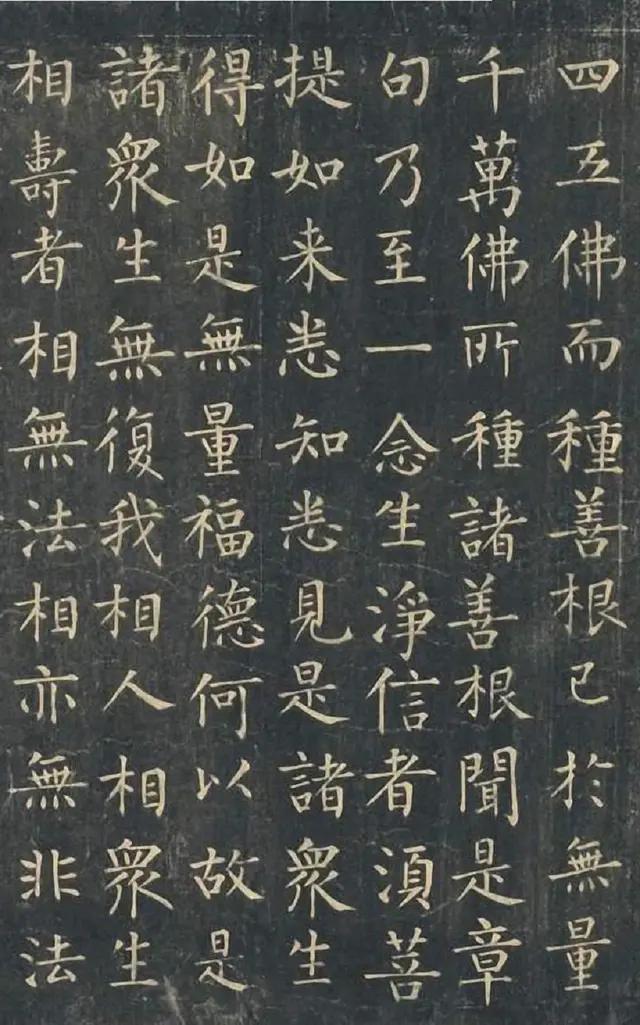 四五佛而種善根已於無量
千萬佛所種諸善根聞是章
句乃至一念生淨信者須菩
提如来悉知悉見是諸衆生
得如是無量福德何以故是
諸衆生無復我相人相衆生
相壽者相無法相亦無非法